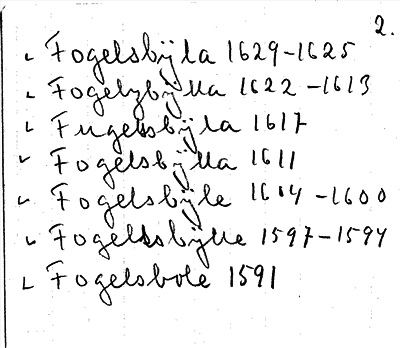 2.
Fogelsbÿla 1629-1625
Fogelzbÿlla 1622-1613
Fugelsbÿla 1617
Fogelsbÿlla 1611
Fogelsbÿle 1604-1600
Fogellsbÿlle 1597-1594
Fogelsbole 1591